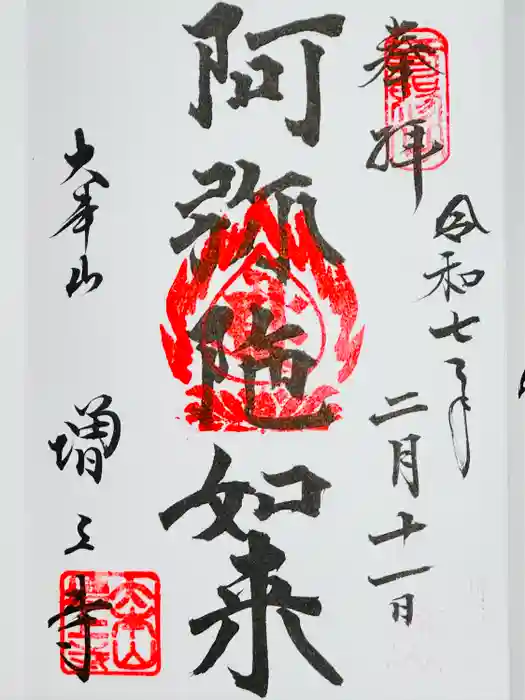 奉拝
令和七年
二月十一日
阿弥陀如来
大峯山
増上寺